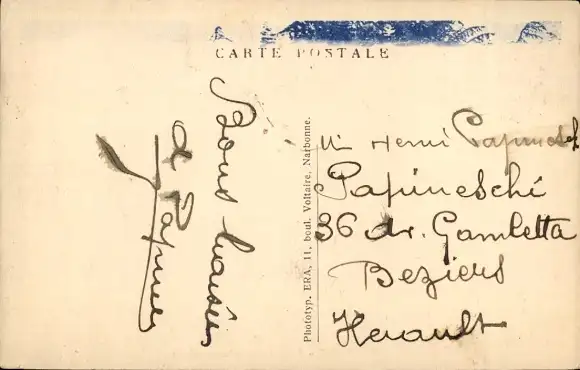 CARTE POSTALE
Bons baisers
Phototyp. ERA, 11, boul. Voltaire, Narbonne.
Henri
Papineschi
36 av. Gambetta
Beziers
Herault